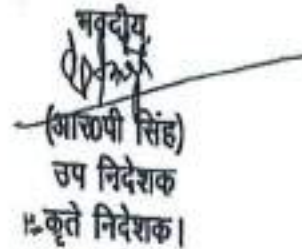 भवदीय,
(आर0पी सिंह)
उप निदेशक
कृते निदेशक।